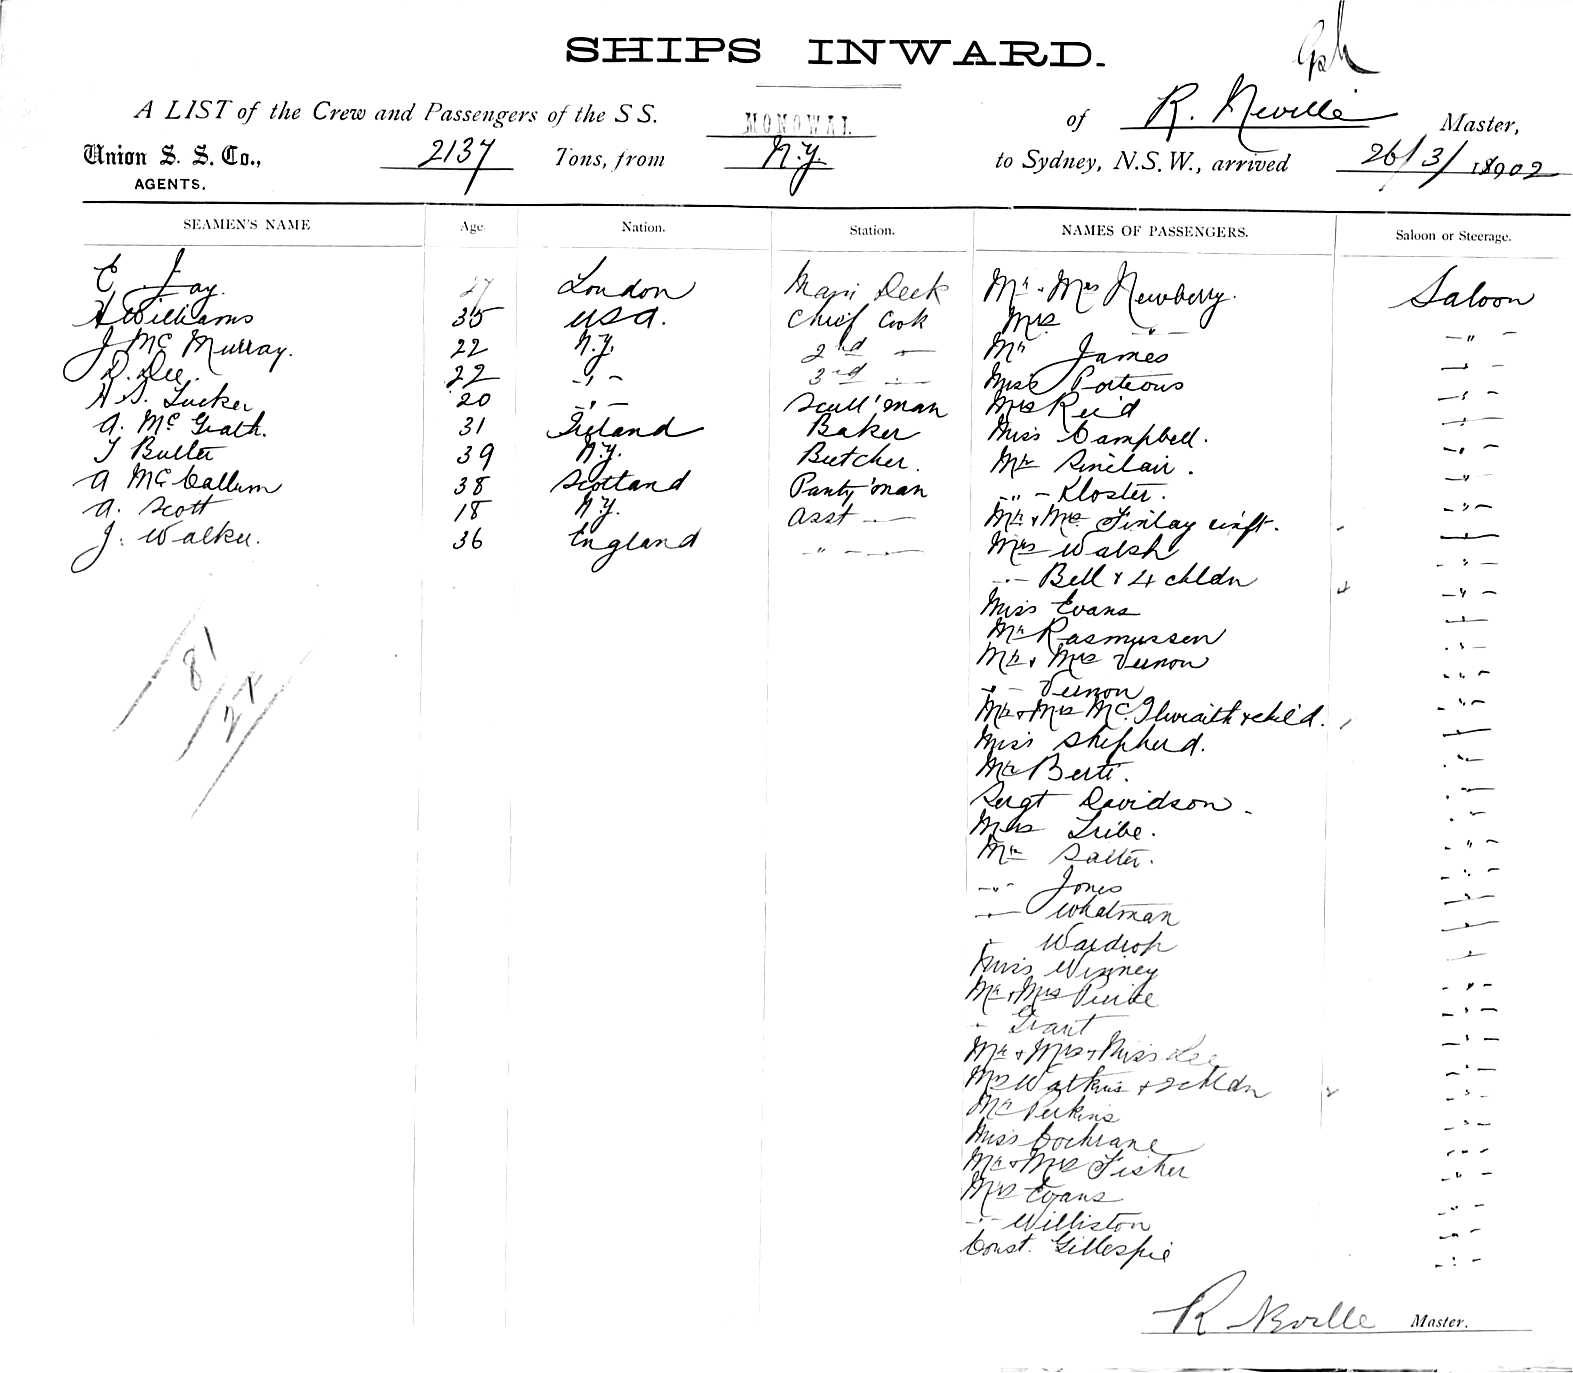 SHIPS INWARD.
A LIST of the Crew and Passengers of the S S. MONOWAI of R. Neville Master,
Union S. S. Co., 2137 Tons, from N.Z. to Sydney, N.S.W., arrived 26/3/1902
AGENTS.
SEAMEN'S NAME Age Nation. Station. NAMES OF PASSENGERS. Saloon or Steerage.
E Jay. 27 London Main Deck Mr & Mrs Newberry. Saloon
H Williams 35 USA. Chief Cook Mrs — " — — " —
J McMurray. 22 N.Z. 2nd — Mr James — " —
D. Dee. 22 — " — 3rd — Miss Porteous — " —
H S. Tucker 20 — " — Scull'man Mrs Reid — " —
A. McGrath. 31 Ireland Baker Miss Campbell. — " —
T Butler 39 N.Z. Butcher. Mr Sinclair. — " —
A McCallum 38 Scotland Panty'man — " — Kloster. — " —
A. Scott 18 N.Z. Asst — Mr & Mrs Finlay & inft. — " —
J. Walker. 36 England " — Mrs Walsh — " —
— " — Bell & 4 chldn — " —
Miss Evans — " —
Mr Rasmussen — " —
Mr & Mrs Vernon — " —
— " — Vernon — " —
Mr & Mrs McIlwraith & child. — " —
Miss Shepherd. — " —
Mr Berti. — " —
Sergt Davidson. — " —
Mrs Tribe. — " —
Mr Salter. — " —
— " — Jones — " —
— " — Whatman — " —
" Wardrop — " —
Miss Winney — " —
Mr & Mrs Peirce — " —
" Grant — " —
Mr & Mrs & Miss Lee — " —
Mrs Watkins & 2 chldn — " —
Mr Perkins — " —
Miss Cochrane — " —
Mr & Mrs Fisher — " —
Mrs Evans — " —
— " — Williston — " —
Const. Gillespie — " —
81
27
R Neville Master.